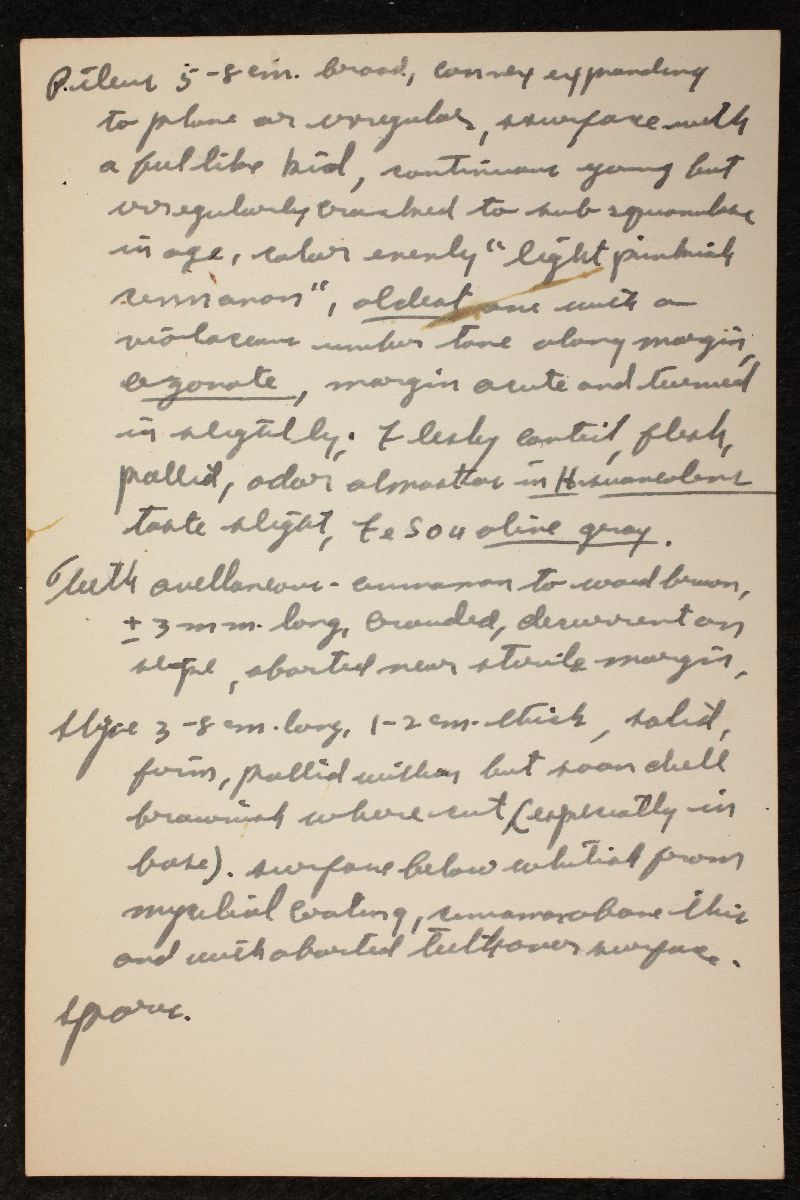 Pileus 5-8 cm. broad, convex expanding
to plane or irregular, surface with
a felt like hid, continuous young but
irregularly cracked to sub squamulose
in age, color evenly "light pinkish
cinnamon", oldest one with a
violaceous umber tone along margin,
azonate, margin acute and turned
in slightly. Fleshy context, flesh,
pallid, odor almost as in H. suaveolens
taste slight, FeSO4 olive gray.
Teeth avellaneous-cinnamon to wood brown,
± 3 mm. long, crowded, decurrent on
stipe, aborted near sterile margin,
Stipe 3-8 cm. long, 1-2 cm. thick, solid,
firm, pallid within but soon dull
brownish where cut (especially in
base). surface below whitish from
mycelial coating, cinnamon above this
and with aborted teeth over surface.
Spores.